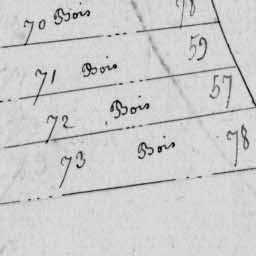 70 Bois 78
71 Bois 59
72 Bois 57
73 Bois 78